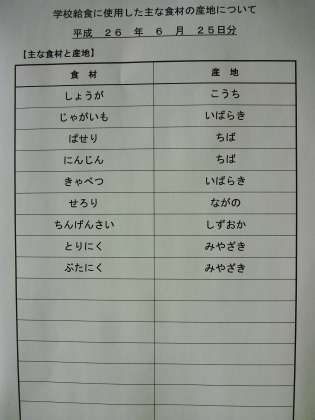 学校給食に使用した主な食材の産地について
平成　２６　年　６　月　２５日分
【主な食材と産地】
食　材　産　地
しょうが　こうち
じゃがいも　いばらき
ぱせり　ちば
にんじん　ちば
きゃべつ　いばらき
せろり　ながの
ちんげんさい　しずおか
とりにく　みやざき
ぶたにく　みやざき